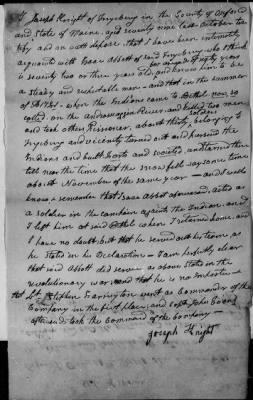 I Joseph Knight of Fryeburg in the County of Oxford
and State of Maine, aged seventy nine last October tes
tify and on oath depose, that I have been intimately
acquainted with Isaac Abbot of said Fryeburg who I think
for upwards of fifty years
is seventy two or three years old, and know him to be
a steady and respectable man - and that in the summer
of when the Indians came to Bethel now so
called, on the Androscoggin River, and killed two men
and took others Prisoners, about thirty soldiers belonging to
Fryeburg and vicinity turned out and pursued the
Indians and built Forts and scouted, and
till near the time that the snow fell say some time
about November of the same year - and I well
know & remember that Isaac Abbot aforesaid, acted as
a soldier in the campaign against the Indians and
I left him at said Bethel when I returned home, and
I have no doubt but that he served out his term, as
he stated in his Declaration - I am perfectly clear
that said Abbott did serve as above stated in the
revolutionary war and that he is no Imposter -
that Lt Stephen Farrington went as Commander of the
Company in the first place; and Capt. John Evans
afterwards took the Command of the Company -
Joseph Knight